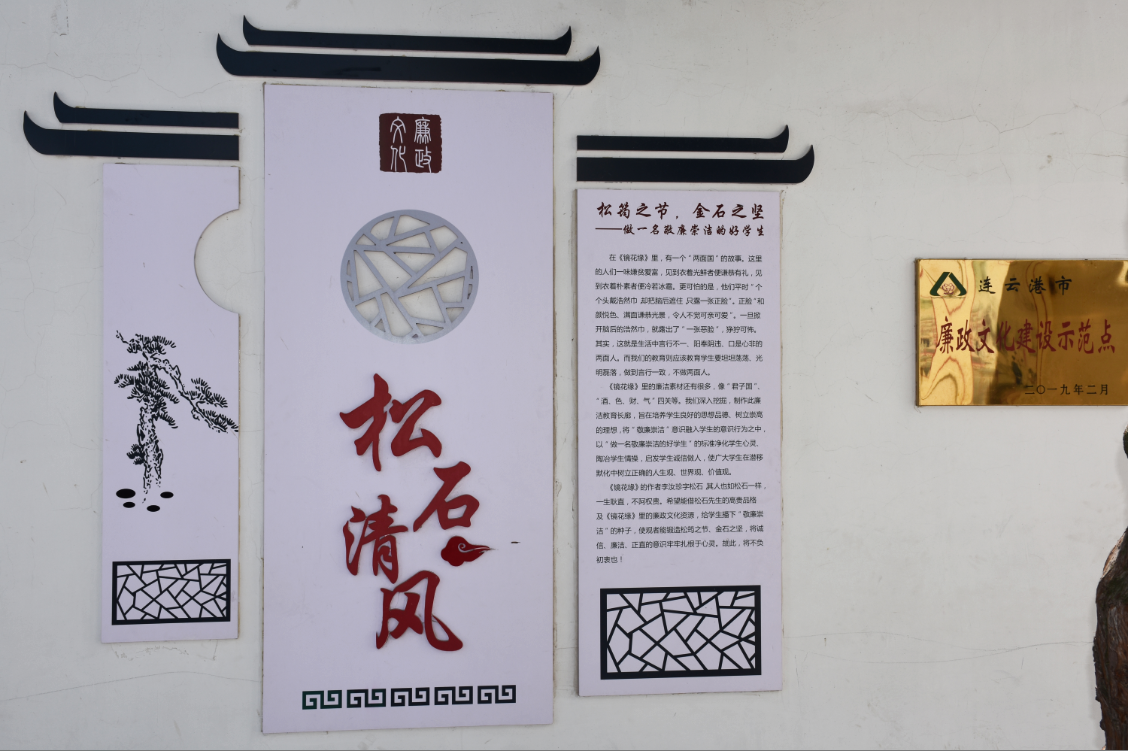 廉政
文化
松石清风
松筠之节，金石之坚
——做一名敬廉崇洁的好学生
在《镜花缘》里，有一个“两面国”的故事。这里
的人们一味嫌贫爱富，见到衣着光鲜者便谦恭有礼，见
到衣着朴素者便冷若冰霜。更可怕的是，他们平时“个
个头戴浩然巾，却把脑后遮住，只露一张正脸”。正脸“和
颜悦色、满面谦恭光景，令人不觉可亲可爱”。一旦掀
开脑后的浩然巾，就露出了“一张恶脸”，狰狞可怖。
其实，这就是生活中言行不一、阳奉阴违、口是心非的
两面人。而我们的教育则应该教育学生要坦坦荡荡、光
明磊落，做到言行一致，不做两面人。
《镜花缘》里的廉洁素材还有很多，像“君子国”，
“酒、色、财、气”四关等。我们深入挖掘，制作此廉
洁教育长廊，旨在培养学生良好的思想品德、树立崇高
的理想，将“敬廉崇洁”意识融入学生的意识行为之中，
以“做一名敬廉崇洁的好学生”的标准净化学生心灵、
陶冶学生情操，启发学生诚信做人，使广大学生在潜移
默化中树立正确的人生观、世界观、价值观。
《镜花缘》的作者李汝珍字松石，其人也如松石一样，
一生耿直，不阿权贵。希望能借松石先生的高贵品格
及《镜花缘》里的廉政文化资源，给学生播下“敬廉崇
洁”的种子，使观者能锻造松筠之节、金石之坚，将诚
信、廉洁、正直的意识牢牢扎根于心灵。据此，将不负
初衷也！
连云港市
廉政文化建设示范点
二〇一九年二月